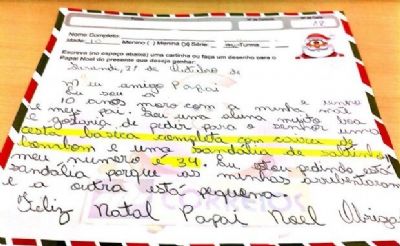 Nome Completo:
Idade: 10 Menino ( ) Menina Série: Turma
Escreva (no espaço abaixo) uma cartinha ou faça um desenho para o
Papai Noel do presente que deseja ganhar:
21 de Outubro de
Meu amigo Papai
Eu sou a
10 anos moro com a minha mãe
e meu pai. Sou uma aluna muito boa
e gotaria de pedir para o senhor uma
cesta básica completa com caixa de
bombom e uma sandália de saltinho
meu número é 34. Eu estou pedindo esta
sandália porque as minhas arrebentaram
e a outra está pequena.
Feliz Natal Papai Noel Obrigada
CORREIOS